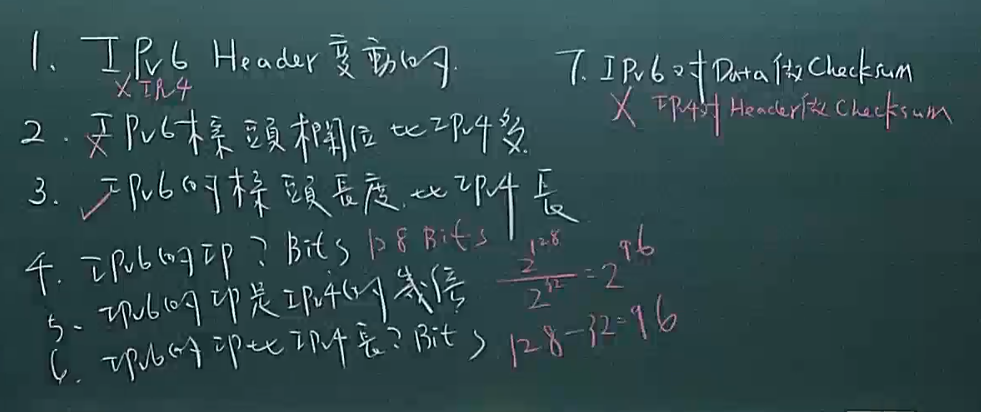 1. IPv6 Header 變動的.
X IPv4
2. IPv6標頭欄位比IPv4多
X
3. IPv6的標頭長度比IPv4長
✓
4. IPv6的IP?Bits 128 Bits
5. IPv6的IP是IPv4的幾倍 2^128/2^32=2^96
6. IPv6的IP比IPv4長?Bits 128-32=96
7. IPv6対Data做Checksum
X IPv4対Header做Checksum